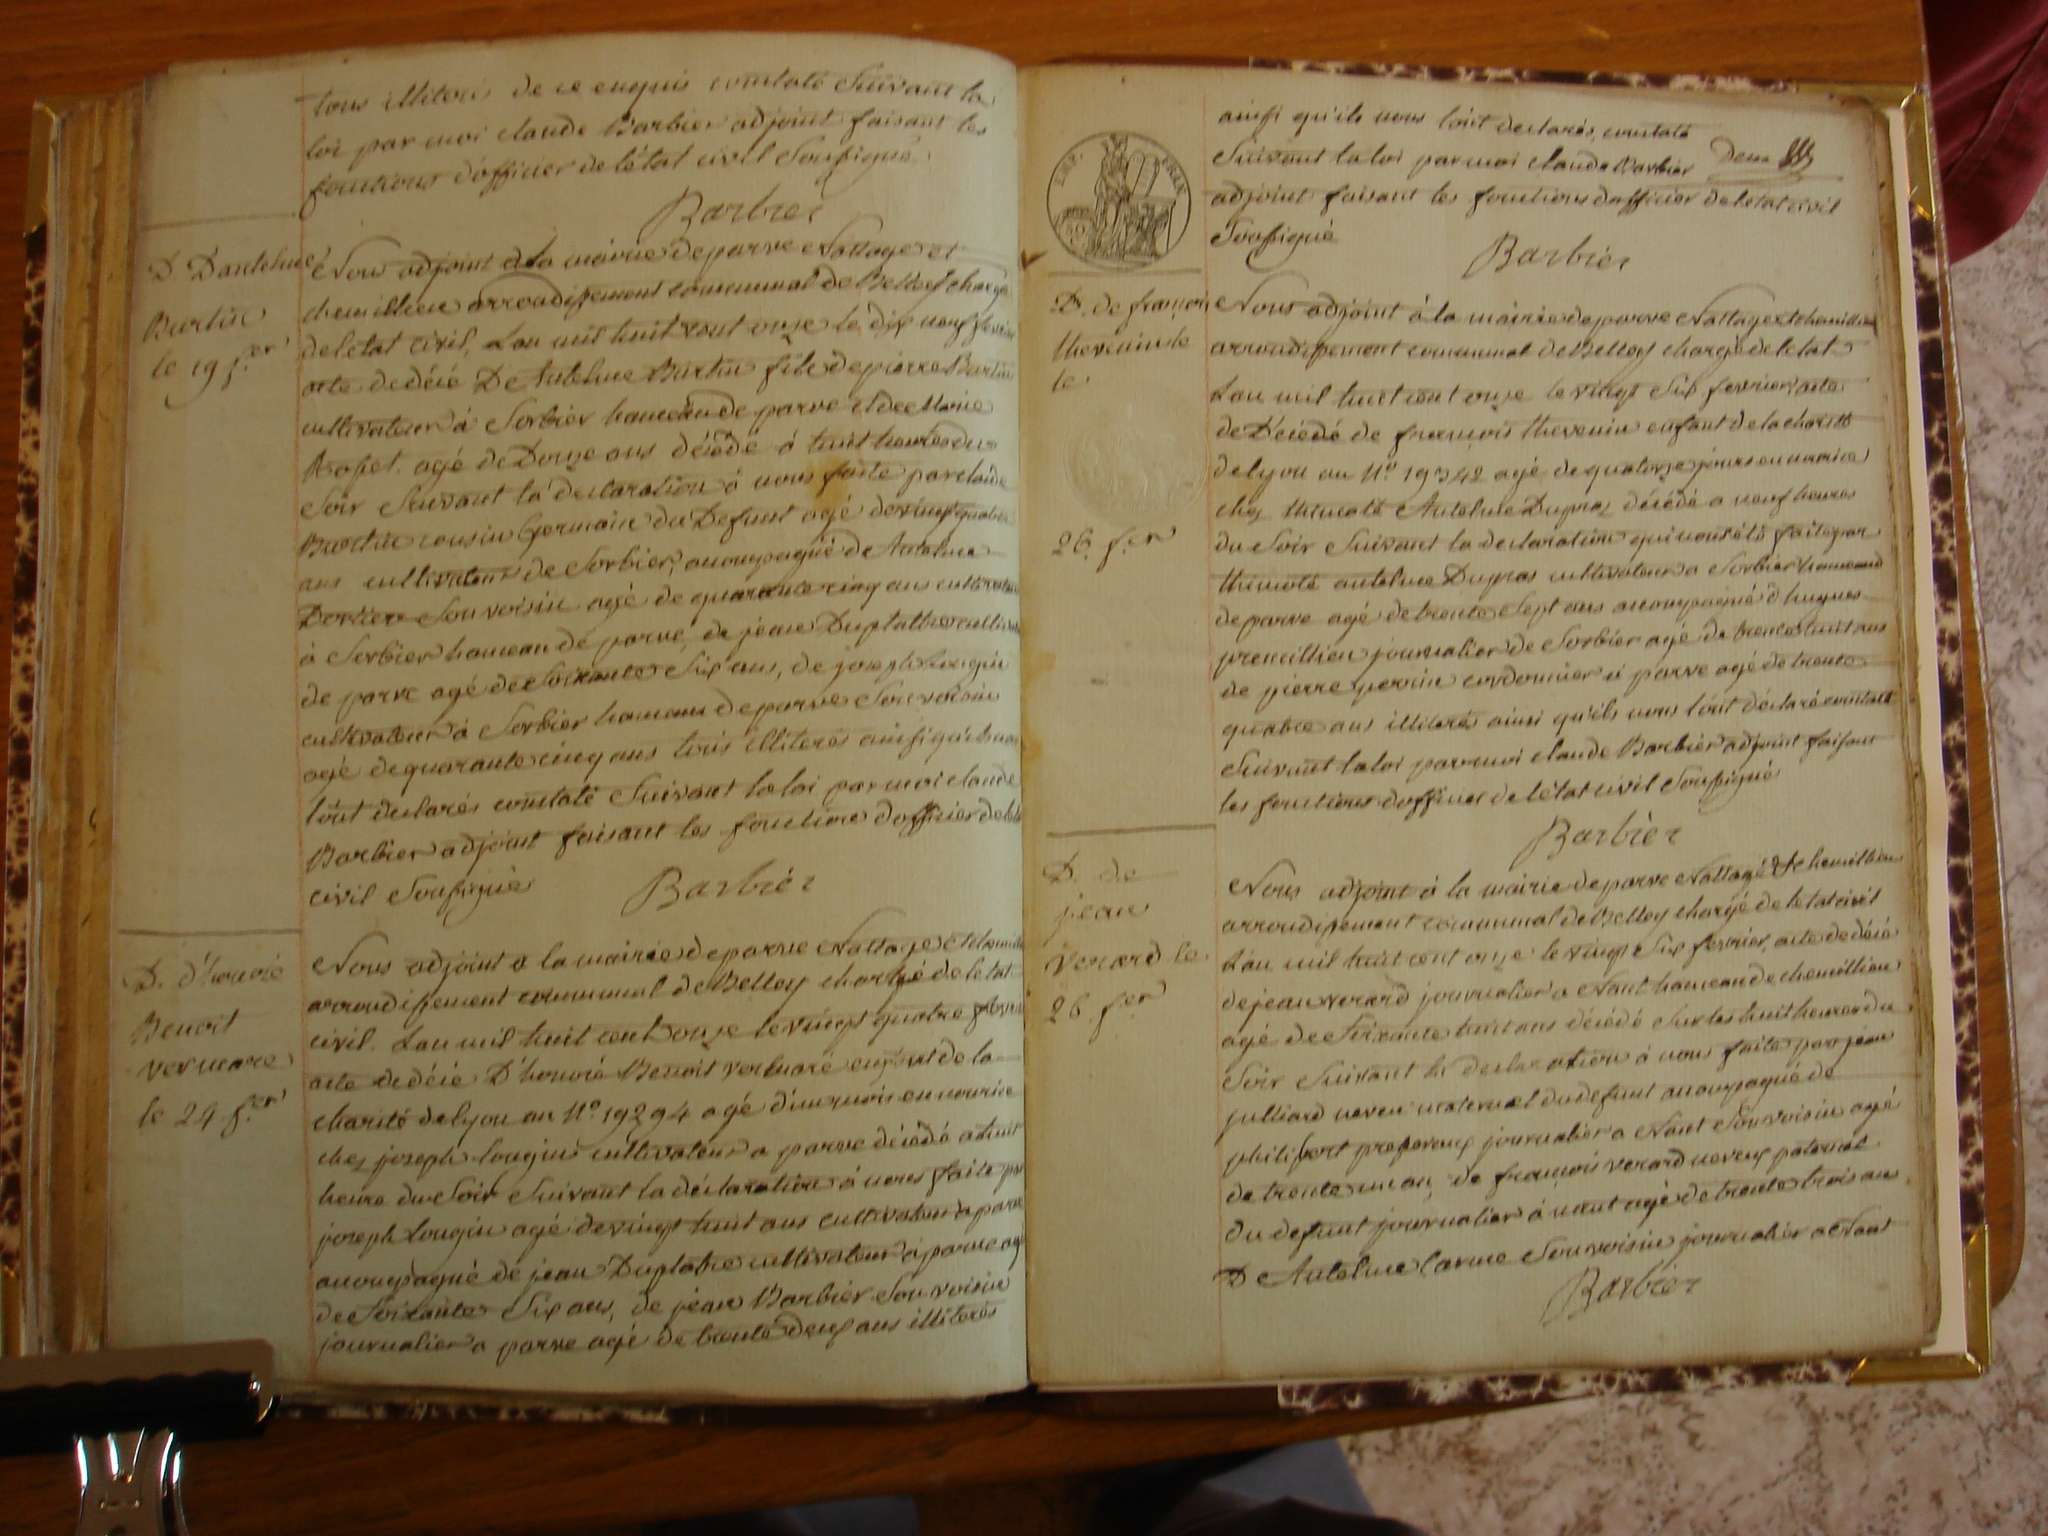 tous illiterés de ce enquis constaté Suivant la
loi par moi claude Barbier adjoint faisant les
fonctions d'officier de l'état civil Soussigné
Barbier
D. Dantelme
Burtin
le 19 f.er
Nous adjoint à la mairie de parve Nattage et
chemillieu arrondissement communal de Belley chargé
de letat civil, L'an mil huit cent onze le dix neuf fevrier
acte de décé De Antelme Burtin fils de pierre Burtin
cultivateur à Sorbier hameau de parve et de Marie
agé de Douze ans décédé à huit heures du
Soir Suivant la déclaration à nous faite par claude
Burtin cousin Germain du Defunt agé de vingt quatre
ans cultivateur de Sorbier, accompagné de Antelme
Son voisin agé de quarante cinq ans cultivateur
à Sorbier hameau de parve, de jean Duplattre cultiv
de parve agé de Soixante Six ans, de joseph Lougin
cultivateur à Sorbier hameau de parve Son voisin
agé de quarante cinq ans tous illiterés ainsi qu'ils nous
l'ont declarés constaté Suivant la loi par moi claude
Barbier adjoint faisant les fonctions d'officier de l'etat
civil Soussigné
Barbier
D. d'honoré
Benoit
vermare
le 24 f.er
Nous adjoint a la mairie de parve Nattage et chemilli
arrondissement communal de Belley chargé de letat
civil. L'an mil huit cent onze le vingt quatre fevrier
acte de décé D'honoré Benoit vermaré enfant de la
charité de lyon au N.o 19294 agé d'un mois en nourice
chez joseph lougin cultivateur a parve décédé a huit
heure du Soir Suivant la déclaration à nous faite par
joseph Lougin agé de vingt huit ans cultivateur a parve
accompagné de jean Duplatre cultivateur à parve agé
de Soixante Six ans, de jean Barbier Son voisin
journalier a parve agé de trente deux ans illiterés
EMP. FRAN.
ainsi qu'ils nous l'ont declarés, constaté
Suivant la loi par moi claude Barbier
adjoint faisant les fonctions d'officier de letat civil
Soussigné
Barbier
D. de françois
thevenin le
le
26. f.er
Nous adjoint à la mairie de parve Nattage et chemillieu
arrondissement communal de Belley chargé de letat
L'an mil huit cent onze le vingt Six fevrier acte
de Décédé de francois thevenin enfant de la charité
de lyon au N.o 19342 agé de quatorze jours en nourice
chez thimoté Antelme Dupraz décédé a neuf heures
du Soir Suivant la declaration qui nous été faite par
thimoté antelme Dupras cultivateur a Sorbier hameau
de parve agé de trente Sept ans accompagné d'hugues
premillieu journalier de Sorbier agé de trente huit ans
de pierre perrin cordonnier à parve agé de trente
quatre ans illiterés ainsi qu'ils nous l'ont déclaré constaté
Suivant la loi par moi claude Barbier adjoint faisant
les fonctions d'officier de l'état civil Soussigné
Barbier
D. de
jean
verard le
26. f.er
Nous adjoint à la mairie de parve Nattage et chemillieu
arrondissement communal de Belley chargé de letat civil
L'an mil huit cent onze le vingt Six fevrier, acte de décé
de jean verard journalier a Nant hameau de chemillieu
agé de Soixante huit ans décédé Sur les huit heures du
Soir Suivant la declaration à nous faite par jean
julliard neveu maternel du defunt accompagné de
philibert journalier a Nant Son voisin agé
de trente un an, de francois verard neveu paternel
du defunt journalier à nant agé de trente trois ans,
D Antelme Carme Son voisin journalier a Nant
Barbier